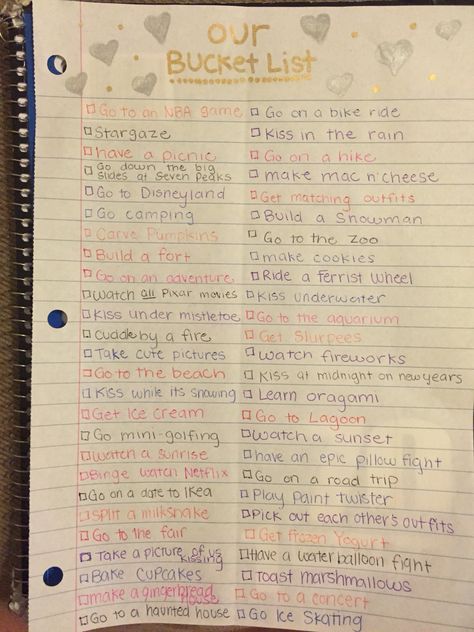 our
Bucket List
Go to an NBA game
Stargaze
have a picnic
Go down the big
slides at Seven Peaks
Go to Disneyland
Go camping
Carve Pumpkins
Build a fort
Go on an adventure
Watch all Pixar movies
Kiss under mistletoe
Cuddle by a fire
Take cute pictures
Go to the beach
Kiss while its snowing
Get Ice Cream
Go mini-golfing
Watch a Sunrise
Binge watch Netflix
Go on a date to Ikea
Split a milkshake
Go to the fair
Take a picture of us
kissing
Bake cupcakes
make a gingerbread
House
Go to a haunted house
Go on a bike ride
Kiss in the rain
Go on a hike
make mac n' cheese
Get matching outfits
Build a Snowman
Go to the Zoo
make cookies
Ride a ferrist wheel
Kiss underwater
Go to the aquarium
Get Slurpees
Watch fireworks
Kiss at midnight on new years
Learn oragami
Go to Lagoon
Watch a sunset
have an epic pillow fight
Go on a road trip
Play paint twister
Pick out each other's outfits
Get frozen Yogurt
Have a water balloon fight
Toast marshmallows
Go to a concert
Go Ice Skating